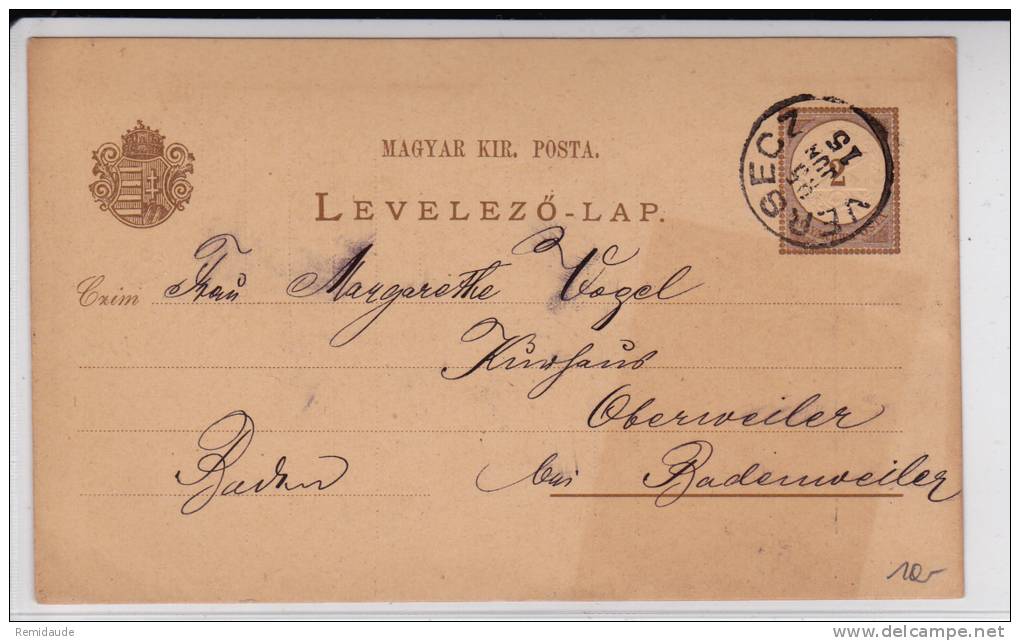 MAGYAR KIR. POSTA.
LEVELEZŐ-LAP.
VERSECZ
15
2
Czim Frau Margarethe Vogel
Kurhaus
Oberweiler
Baden bei Badenweiler
10-
Remidaude
www.delcampe.net